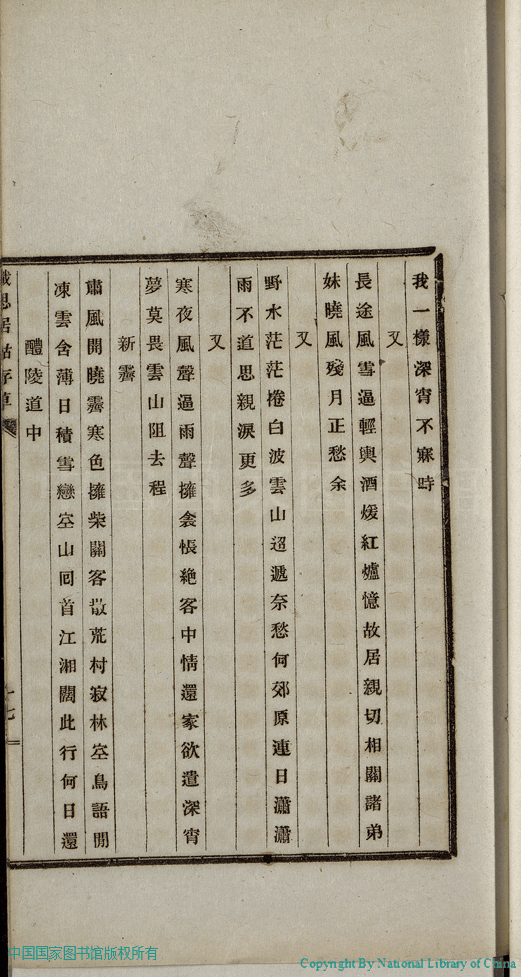 我一樣深宵不寐時
又
長途風雪逼輕輿酒煖紅爐憶故居親切相關諸弟
妹曉風殘月正愁余
又
野水茫茫捲白波雲山迢遞奈愁何郊原連日瀟瀟
雨不道思親淚更多
又
寒夜風聲逼雨聲擁衾悵絶客中情還家欲遣深宵
夢莫畏雲山阻去程
新霽
肅風開曉霽寒色擁柴關客散荒村寂林空鳥語閒
凍雲含薄日積雪戀空山囘首江湘闊此行何日還
醴陵道中
思居
存草
十七
中国国家图书馆版权所有
Copyright By National Library of China